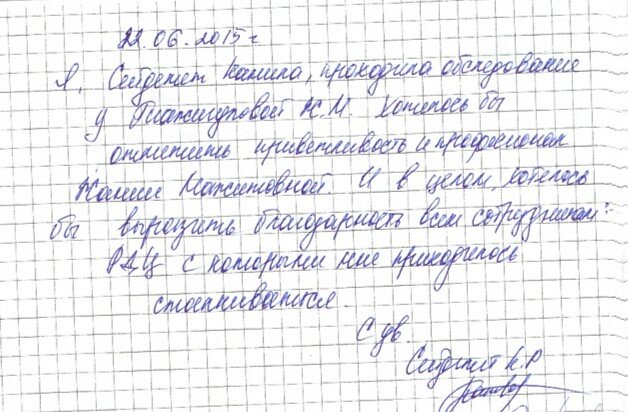 22.06.2015 г
Я, Сейдемет Камила, проходила обследование
у К.М. Хотелось бы
отметить приветливость и професионал
Мажитовной. И в целом, хотелось
бы выразить благодарность всем сотрудникам
РДЦ с которыми мне приходилось
сталкиваться.
С ув.
К.Р